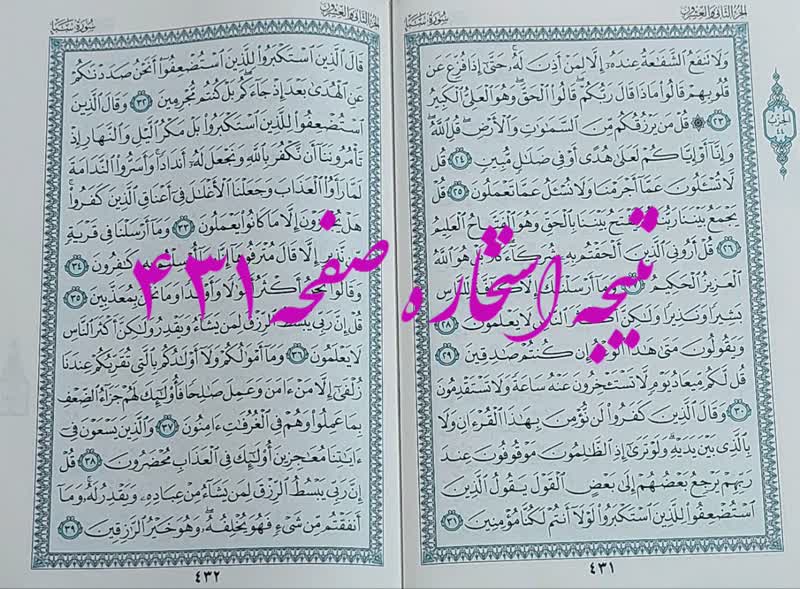 الجزء الثاني والعشرون
سورة سبأ
ولا تنفع الشفعة عنده إلا لمن أذن له حتى إذا فزع عن
قلوبهم قالوا ماذا قال ربكم قالوا الحق وهو العلي الكبير
٢٣ قل من يرزقكم من السموت والأرض قل الله
وإنا أو إياكم لعلى هدى أو في ضلل مبين ٢٤ قل
لا تسئلون عما أجرمنا ولا نسئل عما تعملون ٢٥ قل
يجمع بيننا ربنا ثم يفتح بيننا بالحق وهو الفتاح العليم
٢٦ قل أروني الذين ألحقتم به شركاء كلا بل هو الله
العزيز الحكيم ٢٧ وما أرسلنك إلا كافة للناس
بشيرا ونذيرا ولكن أكثر الناس لا يعلمون ٢٨
ويقولون متى هذا الوعد إن كنتم صدقين ٢٩
قل لكم ميعاد يوم لا تستءخرون عنه ساعة ولا تستقدمون
٣٠ وقال الذين كفروا لن نؤمن بهذا القرءان ولا
بالذي بين يديه ولو ترى إذ الظلمون موقوفون عند
ربهم يرجع بعضهم إلى بعض القول يقول الذين
استضعفوا للذين استكبروا لولا أنتم لكنا مؤمنين ٣١
٤٣١
الحزب
٤٤
الجزء الثاني والعشرون
سورة سبأ
قال الذين استكبروا للذين استضعفوا أنحن صددنكم
عن الهدى بعد إذ جاءكم بل كنتم مجرمين ٣٢ وقال الذين
استضعفوا للذين استكبروا بل مكر اليل والنهار إذ
تأمروننا أن نكفر بالله ونجعل له أندادا وأسروا الندامة
لما رأوا العذاب وجعلنا الأغلل في أعناق الذين كفروا
هل يجزون إلا ما كانوا يعملون ٣٣ وما أرسلنا في قرية
من نذير إلا قال مترفوها إنا بما أرسلتم به كفرون ٣٤
وقالوا نحن أكثر أمولا وأولدا وما نحن بمعذبين ٣٥
قل إن ربي يبسط الرزق لمن يشاء ويقدر ولكن أكثر الناس
لا يعلمون ٣٦ وما أمولكم ولا أولدكم بالتي تقربكم عندنا
زلفى إلا من ءامن وعمل صلحا فأولئك لهم جزاء الضعف
بما عملوا وهم في الغرفت ءامنون ٣٧ والذين يسعون في
ءايتنا معجزين أولئك في العذاب محضرون ٣٨ قل
إن ربي يبسط الرزق لمن يشاء من عباده ويقدر له وما
أنفقتم من شيء فهو يخلفه وهو خير الرزقين ٣٩
٤٣٢
نتیجه استخاره صفحه ۴۳۱